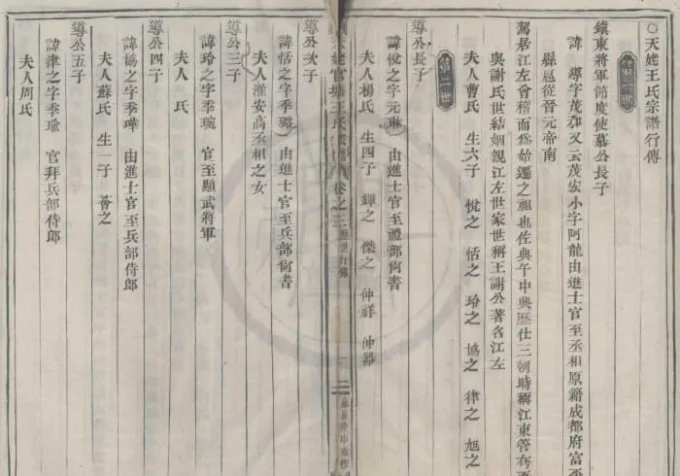 ○天姥王氏宗譜行傳
第一世
鎮東將軍節度使墓公長子
諱 導字茂和又云茂宏小字阿龍由進士官至丞相原籍成都府富
縣屺從晉元帝南
駕居江左會稽而爲始遷之祖也佐典午中興歷仕三朝時稱江東管夷
與謝氏世結姻親江左世家世稱王謝公著名江左
夫人曹氏 生六子 悅之 恬之 玲之 協之 律之 旭之
第二世
導公長子
諱悅之字元琳 由進士官至禮部尙書
夫人楊氏 生四子 輝之 傑之 仲祥 仲器
天姥官塘王氏宗譜 卷之三 歷世行傳 二
導公次子
諱恬之字季 由進士官至兵部尙書
夫人淮安高丞相之女
導公三子
諱玲之字季琬 官至顯武將軍
夫人 氏
導公四子
諱協之字季瑋 由進士官至兵部侍郎
夫人蘇氏 生一子 薈之
導公五子
諱律之字季瑜 官拜兵部侍郎
夫人周氏